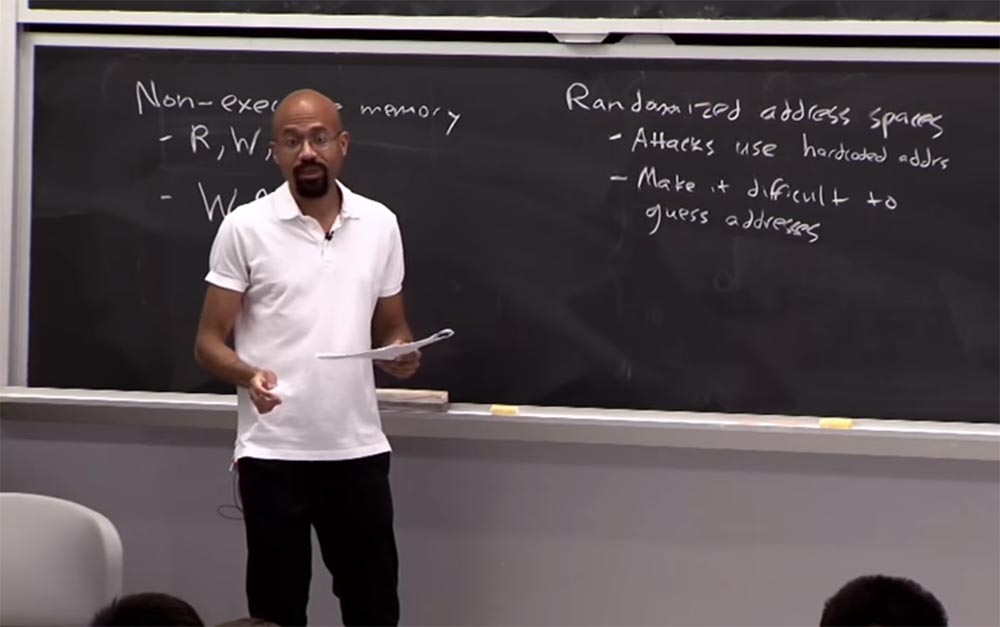 Non-exec memory
- R, W,
- W
Randomized address spaces
- Attacks use hardcoded addrs
- Make it difficult to
guess addresses